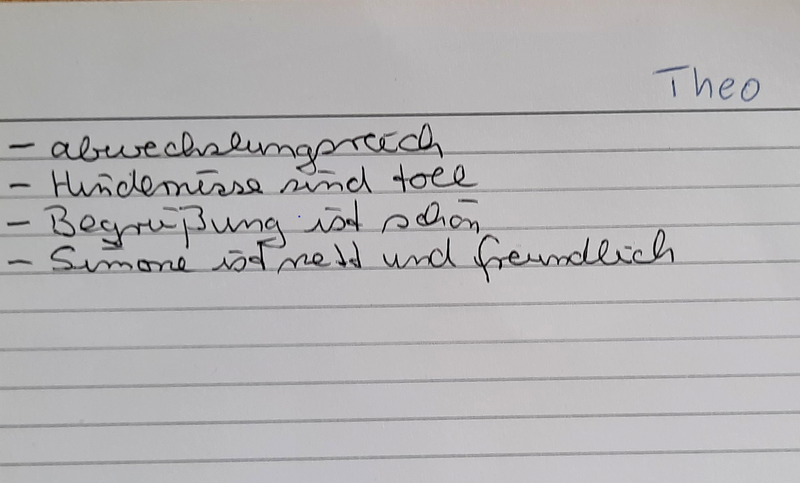 Theo
- abwechslungsreich
- Hindernisse sind toll
- Begrüßung ist schön
- Simone ist nett und freundlich